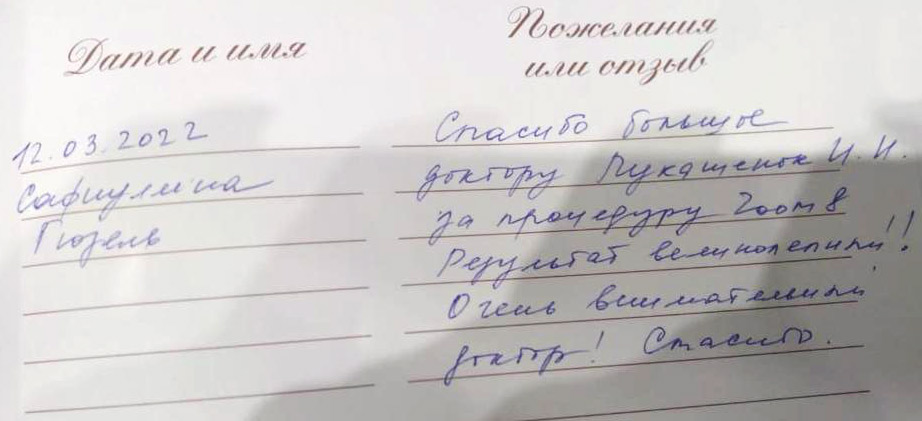 Дата и имя
Пожелания
или отзыв
12.03.2022
Сафиулина
Гюзель
Спасибо большое
доктору Лукашенок И. И.
за процедуру Zoom 8
Результат великолепный!!
Очень внимательный
доктор! Спасибо.